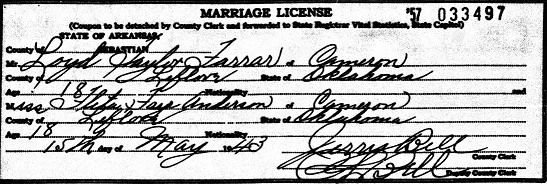 MARRIAGE LICENSE '57 033497
(Coupon to be detached by County Clerk and forwarded to State Registrar Vital Statistics, State Capitol)
STATE OF ARKANSAS,
County of SEBASTIAN
Mr. Loyd Taylor Farrar of Cameron
County of Leflore State of Oklahoma
Age 18 Nationality and
Miss Faye Anderson of Cameron
County of Leflore State of Oklahoma
Age 18 Nationality
15th day of May 1943
Bell County Clerk
Bell Deputy County Clerk